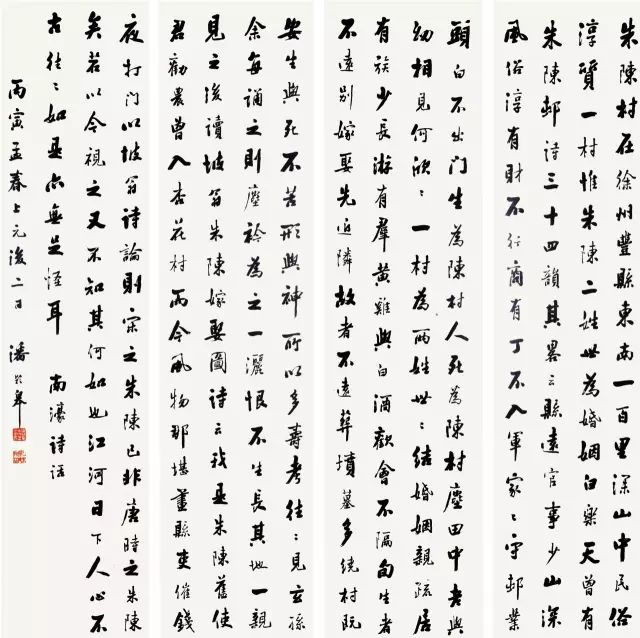 朱陳村在徐州豐縣東南一百里深山中民俗
淳質一村惟朱陳二姓世為婚姻白樂天曾有
朱陳邨詩三十四韻其畧云縣遠官事少山深
風俗淳有財不行商有丁不入軍家〻守邨業
頭白不出門生為陳村人死為陳村塵田中老與
幼相見何欣〻一村為兩姓世〻結婚姻親疏居
有族少長游有羣黃雞與白酒歡會不隔旬生者
不遠別嫁娶先近隣故者不遠葬墳墓多繞村既
安生與死不苦形與神所以多壽考往〻見玄孫
余每誦之則塵衿為之一灑恨不生長其地一親
見之後讀坡翁朱陳嫁娶圖詩云我是朱陳舊使
君勸農曾入杏花村而今風物那堪畫縣吏催錢
夜打門以坡翁詩論則宋之朱陳已非唐時之朱陳
矣若以今視之又不知其何如也江河日下人心不
古往〻如是亦無足怪耳 南濠詩話
丙寅孟春上元後二日 潘齡皋